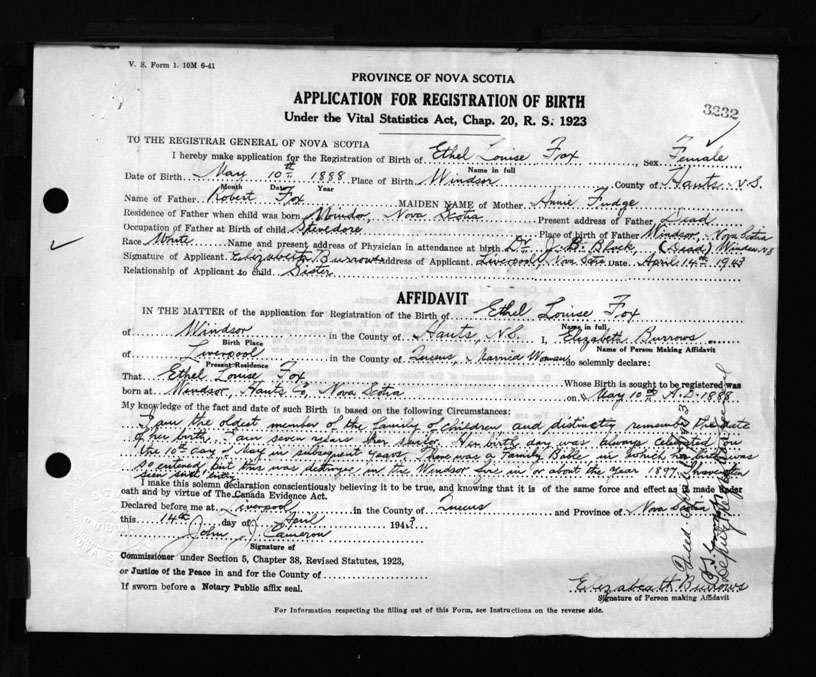 V. S. Form 1. 10M 6-41
PROVINCE OF NOVA SCOTIA
APPLICATION FOR REGISTRATION OF BIRTH
3232
Under the Vital Statistics Act, Chap. 20, R. S. 1923
TO THE REGISTRAR GENERAL OF NOVA SCOTIA
I hereby make application for the Registration of Birth of Ethel Louise Fox, Sex Female
Name in full
Date of Birth May 10th 1888 Place of Birth Windsor County of Hants N.S.
Month Date Year
Name of Father Robert Fox MAIDEN NAME of Mother Annie Fudge
Residence of Father when child was born Windsor, Nova Scotia Present address of Father Dead
Occupation of Father at Birth of child Stevedore Place of birth of Father Windsor, Nova Scotia
Race White Name and present address of Physician in attendance at birth Dr. J. B. Black, (Dead) Windsor N.S
Signature of Applicant Elizabeth Burrows Address of Applicant Liverpool, Nova Scotia Date April 14th 1943
Relationship of Applicant to child Sister
AFFIDAVIT
IN THE MATTER of the application for Registration of the Birth of Ethel Louise Fox
Name in full
of Windsor in the County of Hants, N.S. I, Elizabeth Burrows
Birth Place Name of Person Making Affidavit
of Liverpool in the County of Queens, Married Woman, do solemnly declare:
Present Residence
That Ethel Louise Fox Whose Birth is sought to be registered was
born at Windsor, Hants Co, Nova Scotia on May 10th A.D. 1888
My knowledge of the fact and date of such Birth is based on the following Circumstances:
I am the oldest member of the family of children and distinctly remember the date
of her birth. I am seven years her senior. Her birth day was always celebrated on
the 10th day of May in subsequent years. There was a Family Bible in which her birth was
so entered, but this was destroyed in the Windsor fire in or about the year 1897. I have often
seen said entry
I make this solemn declaration conscientiously believing it to be true, and knowing that it is of the same force and effect as if made under
oath and by virtue of The Canada Evidence Act.
Declared before me at Liverpool in the County of Queens and Province of Nova Scotia
this 14th day of April 1943
John J. Cameron
Signature of
Commissioner under Section 5, Chapter 38, Revised Statutes, 1923,
or Justice of the Peace in and for the County of
If sworn before a Notary Public affix seal.
Elizabeth Burrows
Signature of Person making Affidavit
For Information respecting the filling out of this Form, see Instructions on the reverse side.